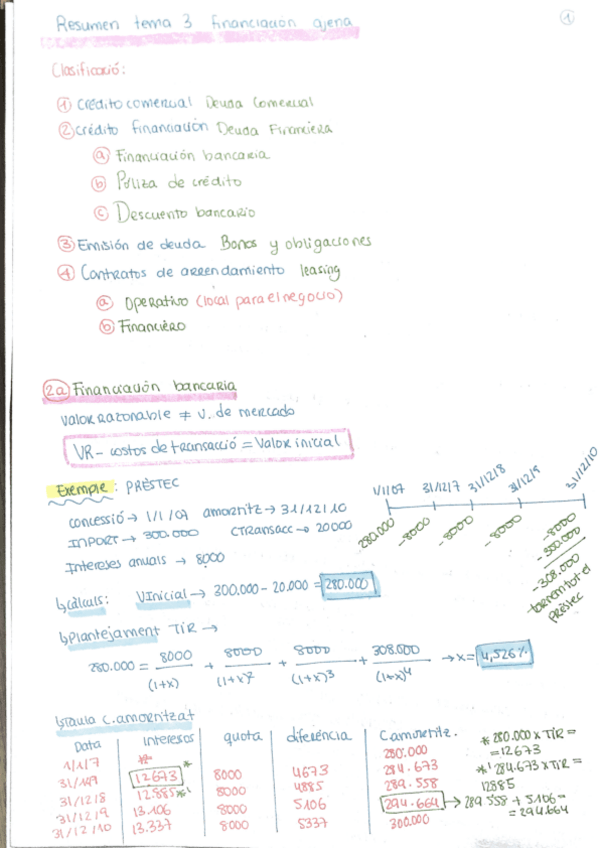 Resumen tema 3 Financiacion ajena
1
Clasificació:
1 Crédito comercial Deuda Comercial
2 Crédito financiación Deuda Financiera
a Financiación bancaria
b Póliza de crédito
c Descuento bancario
3 Emisión de deuda Bonos y obligaciones
4 Contratos de arrendamiento leasing
a Operativo (local para el negocio)
b Financiéro
2a Financiación bancaria
Valor razonable ≠ V. de mercado
VR - costos de transacció = Valor inicial
Exemple: PRÈSTEC
concessió → 1/1/07 amoritz → 31/12/10
IMPORT → 300.000 CTransacc → 20000
Interesos anuals → 8000
1/1/07 31/12/7 31/12/8 31/12/9 31/12/10
280.000 -8000 -8000 -8000 -8000
-300.000
-308.000
tornem tot el
prèstec
↳ càlculs: VInicial → 300.000 - 20.000 = 280.000
↳ Plantejament TIR →
280.000 = 8000/(1+x) + 8000/(1+x)² + 8000/(1+x)³ + 308.000/(1+x)⁴ → x = 4,526%
↳ Taula C.amoritzat
Data interesos quota diferència C amoritz.
1/1/7 ** 280.000
31/12/7 12673 * 8000 4673 284.673
31/12/8 12.885 *' 8000 4885 289.558
31/12/9 13.106 8000 5106 294.664 → 289.558 + 5106 =
= 294.664
31/12/10 13.337 8000 5337 300.000
* 280.000 x TIR =
= 12673
*' 284.673 x TIR =
12885